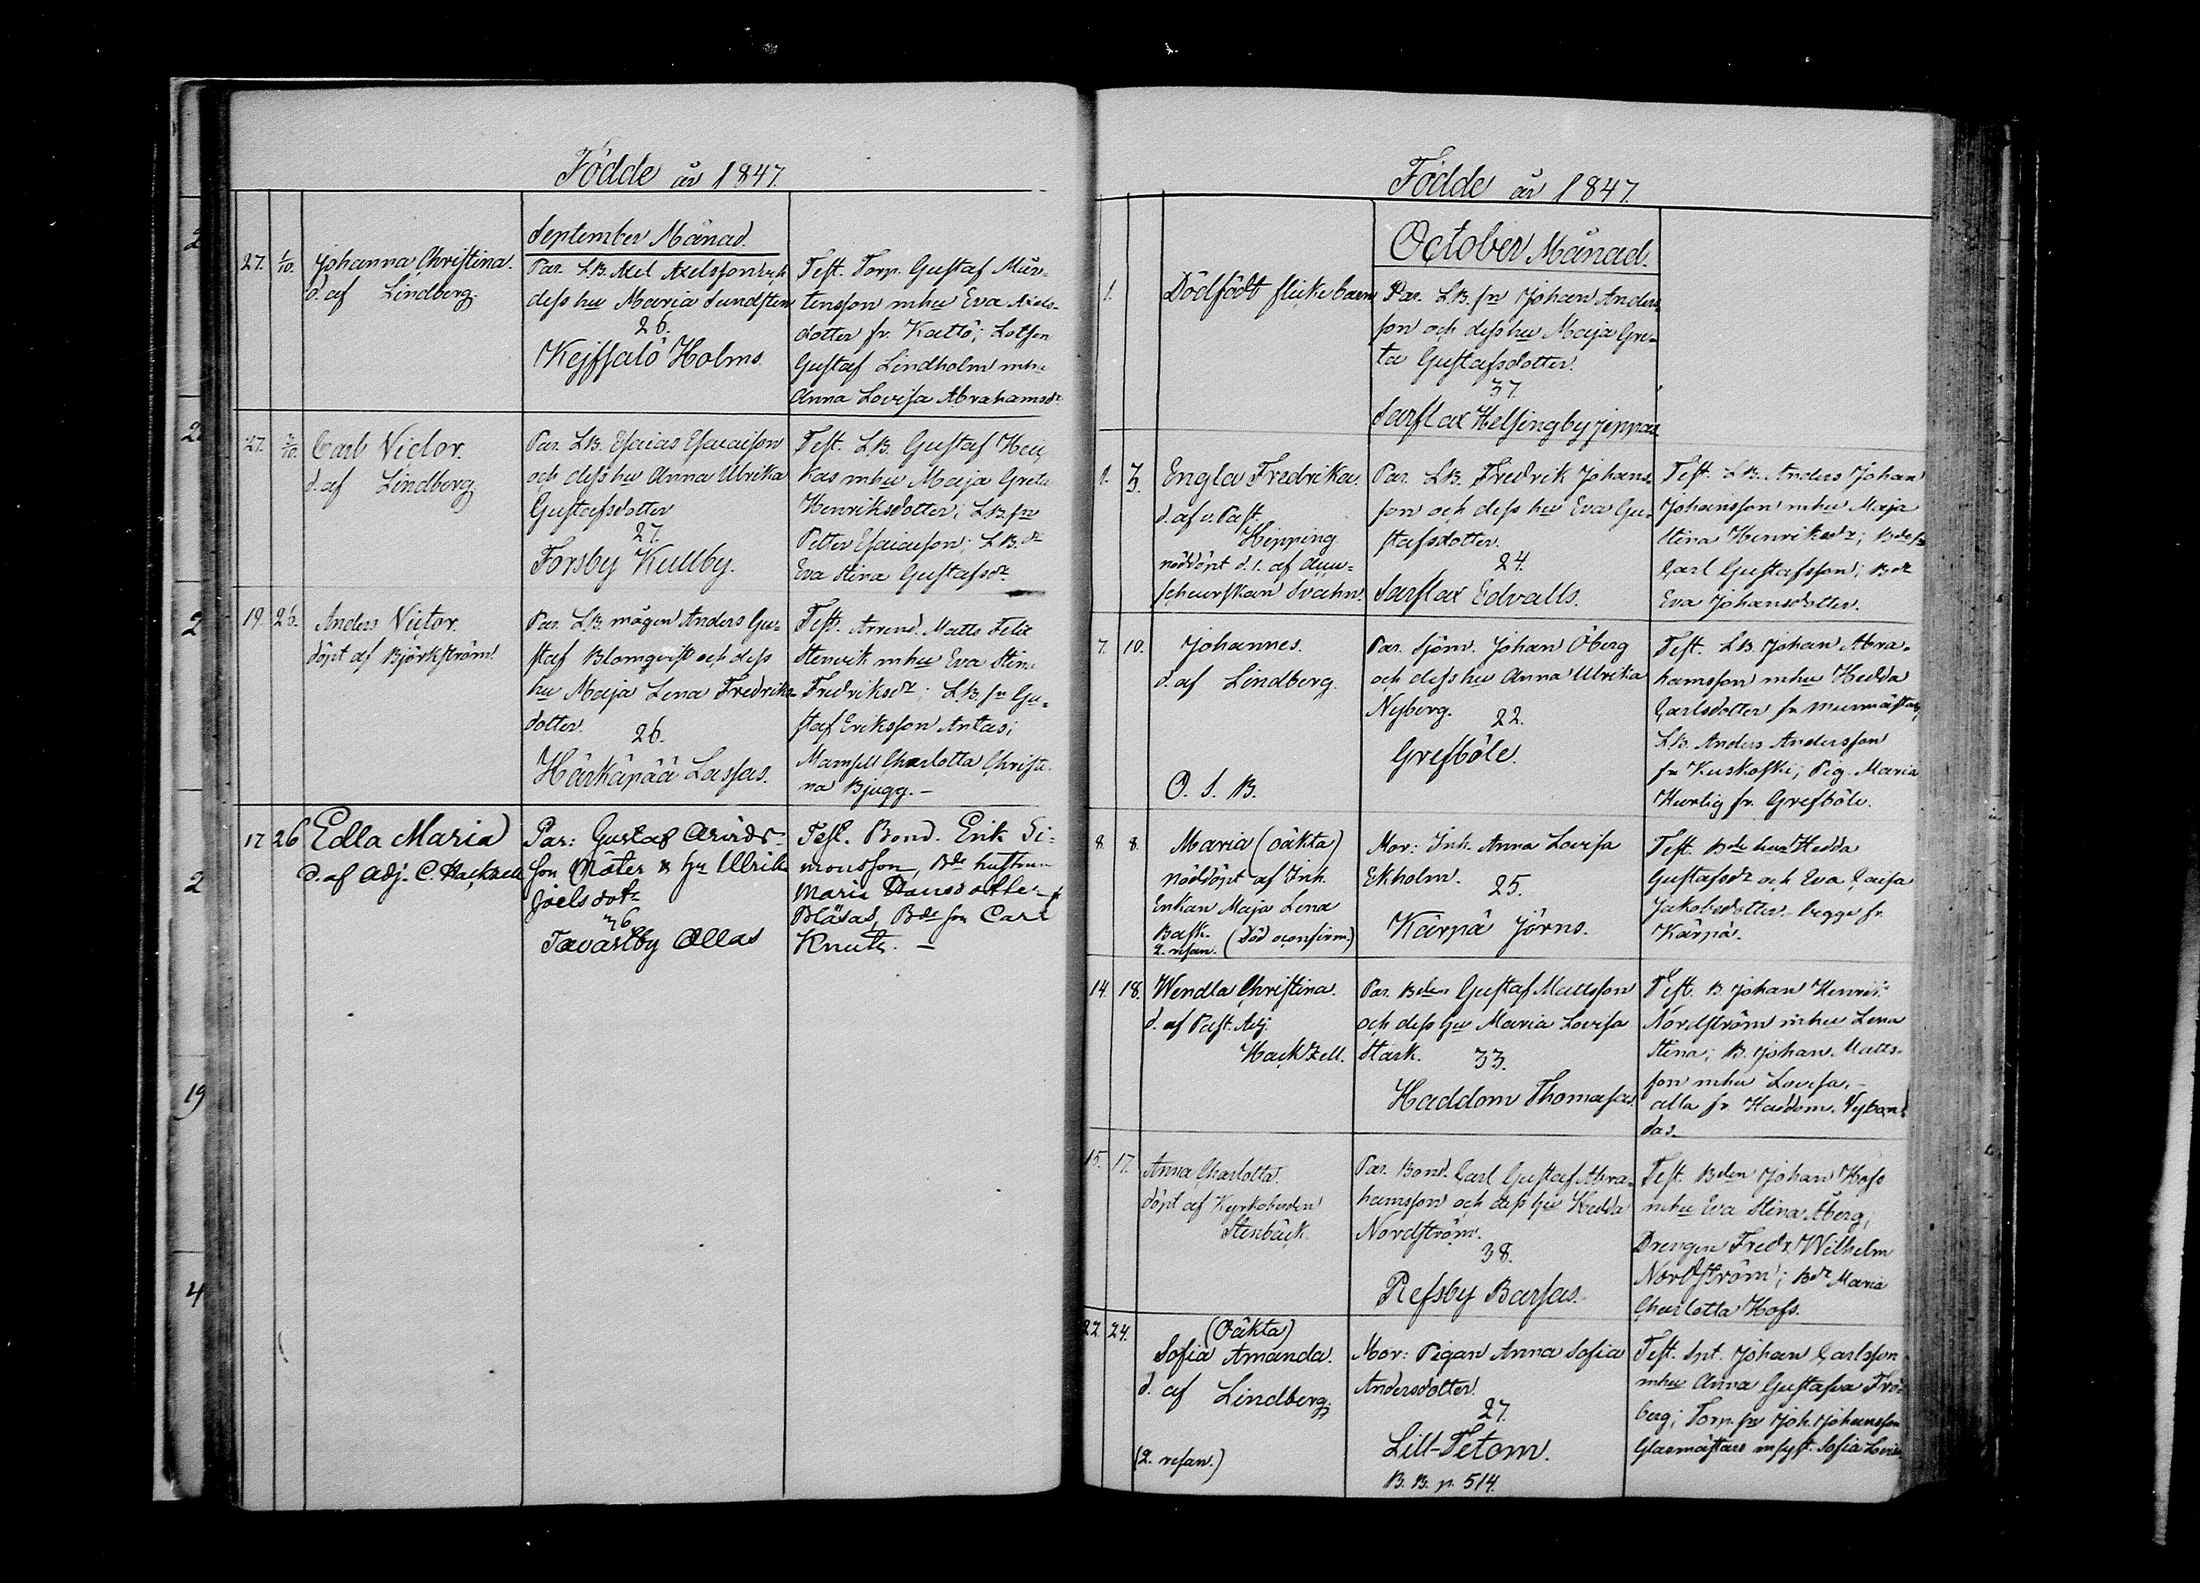 Födde år 1847.
September Månad.
27. 1/10. Johanna Christina.
d. af Lindberg.
Par. L.B. Axel Axelsson och
dess hu Maria Sundsten
26.
Kejsalö Holms.
Test. Torp. Gustaf Mår-
tensson mhu Eva Axels-
dotter fr. Kattö; Lotsen
Gustaf Lindholm mhu
Anna Lovisa Abrahamsdr
27. Carl Victor.
d. af Lindberg.
Par. L.B. Esaias Esaiasson
och dess hu Anna Ulrika
Gustafsdotter
27.
Forsby Kullby.
Test. L.B. Gustaf
kas mhu Maja Greta
Henriksdotter; L.B. sn
Petter Esaiasson; L.B. dr
Eva Stina Gustafsdr
19. 26. Anders Victor.
döpt af Björkström.
Par. L.B. mågen Anders Gu-
staf Blomqvist och dess
hu Maja Lena Fredriks-
dotter.
26.
Härkäpää Lassas.
Test. Arrend. Matts Felix
Stenvik mhu Eva Stina
Fredriksdr; L.B. sn Gu-
staf Eriksson Antas;
Mamsell Charlotta Christi
na Bjugg. –
17 26 Edla Maria
d. af Adj. C. Hackzell
Par: Gustaf Arvids-
son Nöter & hu Ulrika
Joelsdotr
36
Tavastby Ollas
Test. Bond. Erik Si-
monsson, Bde hustrun
Maria Hansdotter fr
Blåsas, Bde sn Carl
Knuts. –
Födde år 1847.
October Månad.
1. Dödfödt flickebarn
Par. L.B. sn Johan Anders-
son och dess hu Maja Gre-
ta Gustafsdotter.
37.
Sarflax Helsingby Jeppas
1. 3. Engla Fredrika.
d. af v. Past.
Hipping
nöddöpt d. 1. af
Svahn.
Par. L.B. Fredrik Johans-
son och dess hu Eva Gu-
stafsdotter.
24.
Sarflax Edvalls.
Test. L.B. Anders Johan
Johansson mhu Maja
Stina Henriksdr; Bdesn
Carl Gustafsson; Bdr
Eva Johansdotter.
7. 10. Johannes.
d. af Lindberg.
O. S. B.
Par. sjöm. Johan Öberg
och dess hu Anna Ulrika
Nyberg. 22.
Grefböle.
Test. L.B. Johan Abra-
hamsson mhu Hedda
Carlsdotter fr
L.B. Anders Andersson
fr Kuskoski; Pig. Maria
Hurtig fr. Grefböle.
8. 8. Maria (oäkta)
nöddöpt af Inh.
Enkan Maja Lena
Bask.
2. resan. (Död oconfirm.)
Mor: Inh. Anna Lovisa
Ekholm. 25.
Kärpä Jörns.
Test. Bde hu Hedda
Gustafsdr och Eva Caisa
Jakobsdotter – begge fr.
Kärpä.
14. 18. Wendla Christina.
d. af Past. Adj.
Hackzell.
Par. Bden Gustaf Mattsson
och dess hu Maria Lovisa
Stark. 33.
Haddom Thomasas.
Test. B. Johan Henrik
Nordström mhu Lena
Stina; B. Johan Matts-
son mhu Lovisa, –
alla fr Haddom. Nybon-
das.
15. 17. Anna Charlotta.
döpt af Kyrkoherden
Stenbäck.
Par. Bond. Carl Gustaf Abra-
hamsson och dess hu Hedda
Nordström.
38.
Refsby Barsas.
Test. Bden Johan Hofs
mhu Eva Stina Åberg,
Drengen Fredr. Wilhelm
Nordström; Bdr Maria
Charlotta Hofs.
22. 24. (Oäkta)
Sofia Amanda.
d. af Lindberg.
(2. resan.)
Mor: Pigan Anna Sofia
Andersdotter.
27.
Lill-Tetom.
B. B. p. 514.
Test. Spt. Johan Carlsson
mhu Anna Gustafva Frö-
berg; Torp. sn Joh. Johansson
Glasmästars m syst. Sofia Lovisa